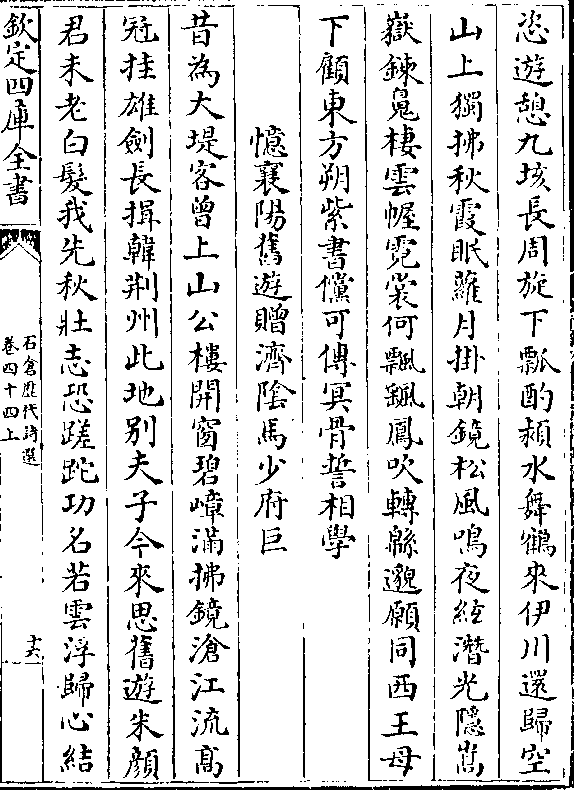 恣遊憩九垓長周旋下瓢酌潁水舞鶴來伊川還歸空
山上獨拂秋霞眠蘿月掛朝鏡松風鳴夜絃潛光隱嵩
嶽鍊鬼棲雲幄霓裳何飄颻鳳吹轉緜邈願同西王母
下顧東方朔紫書儻可傳冥骨誓相學
憶襄陽舊遊贈濟陰馬少府巨
昔為大堤客曾上山公樓開窗碧嶂滿拂鏡滄江流髙
冠挂雄劍長揖韓荆州此地別夫子今來思舊遊朱顏
君未老白髮我先秋壯志恐蹉跎功名若雲浮歸心結
欽定四庫全書
石倉歷代詩選
卷四十四上
十六